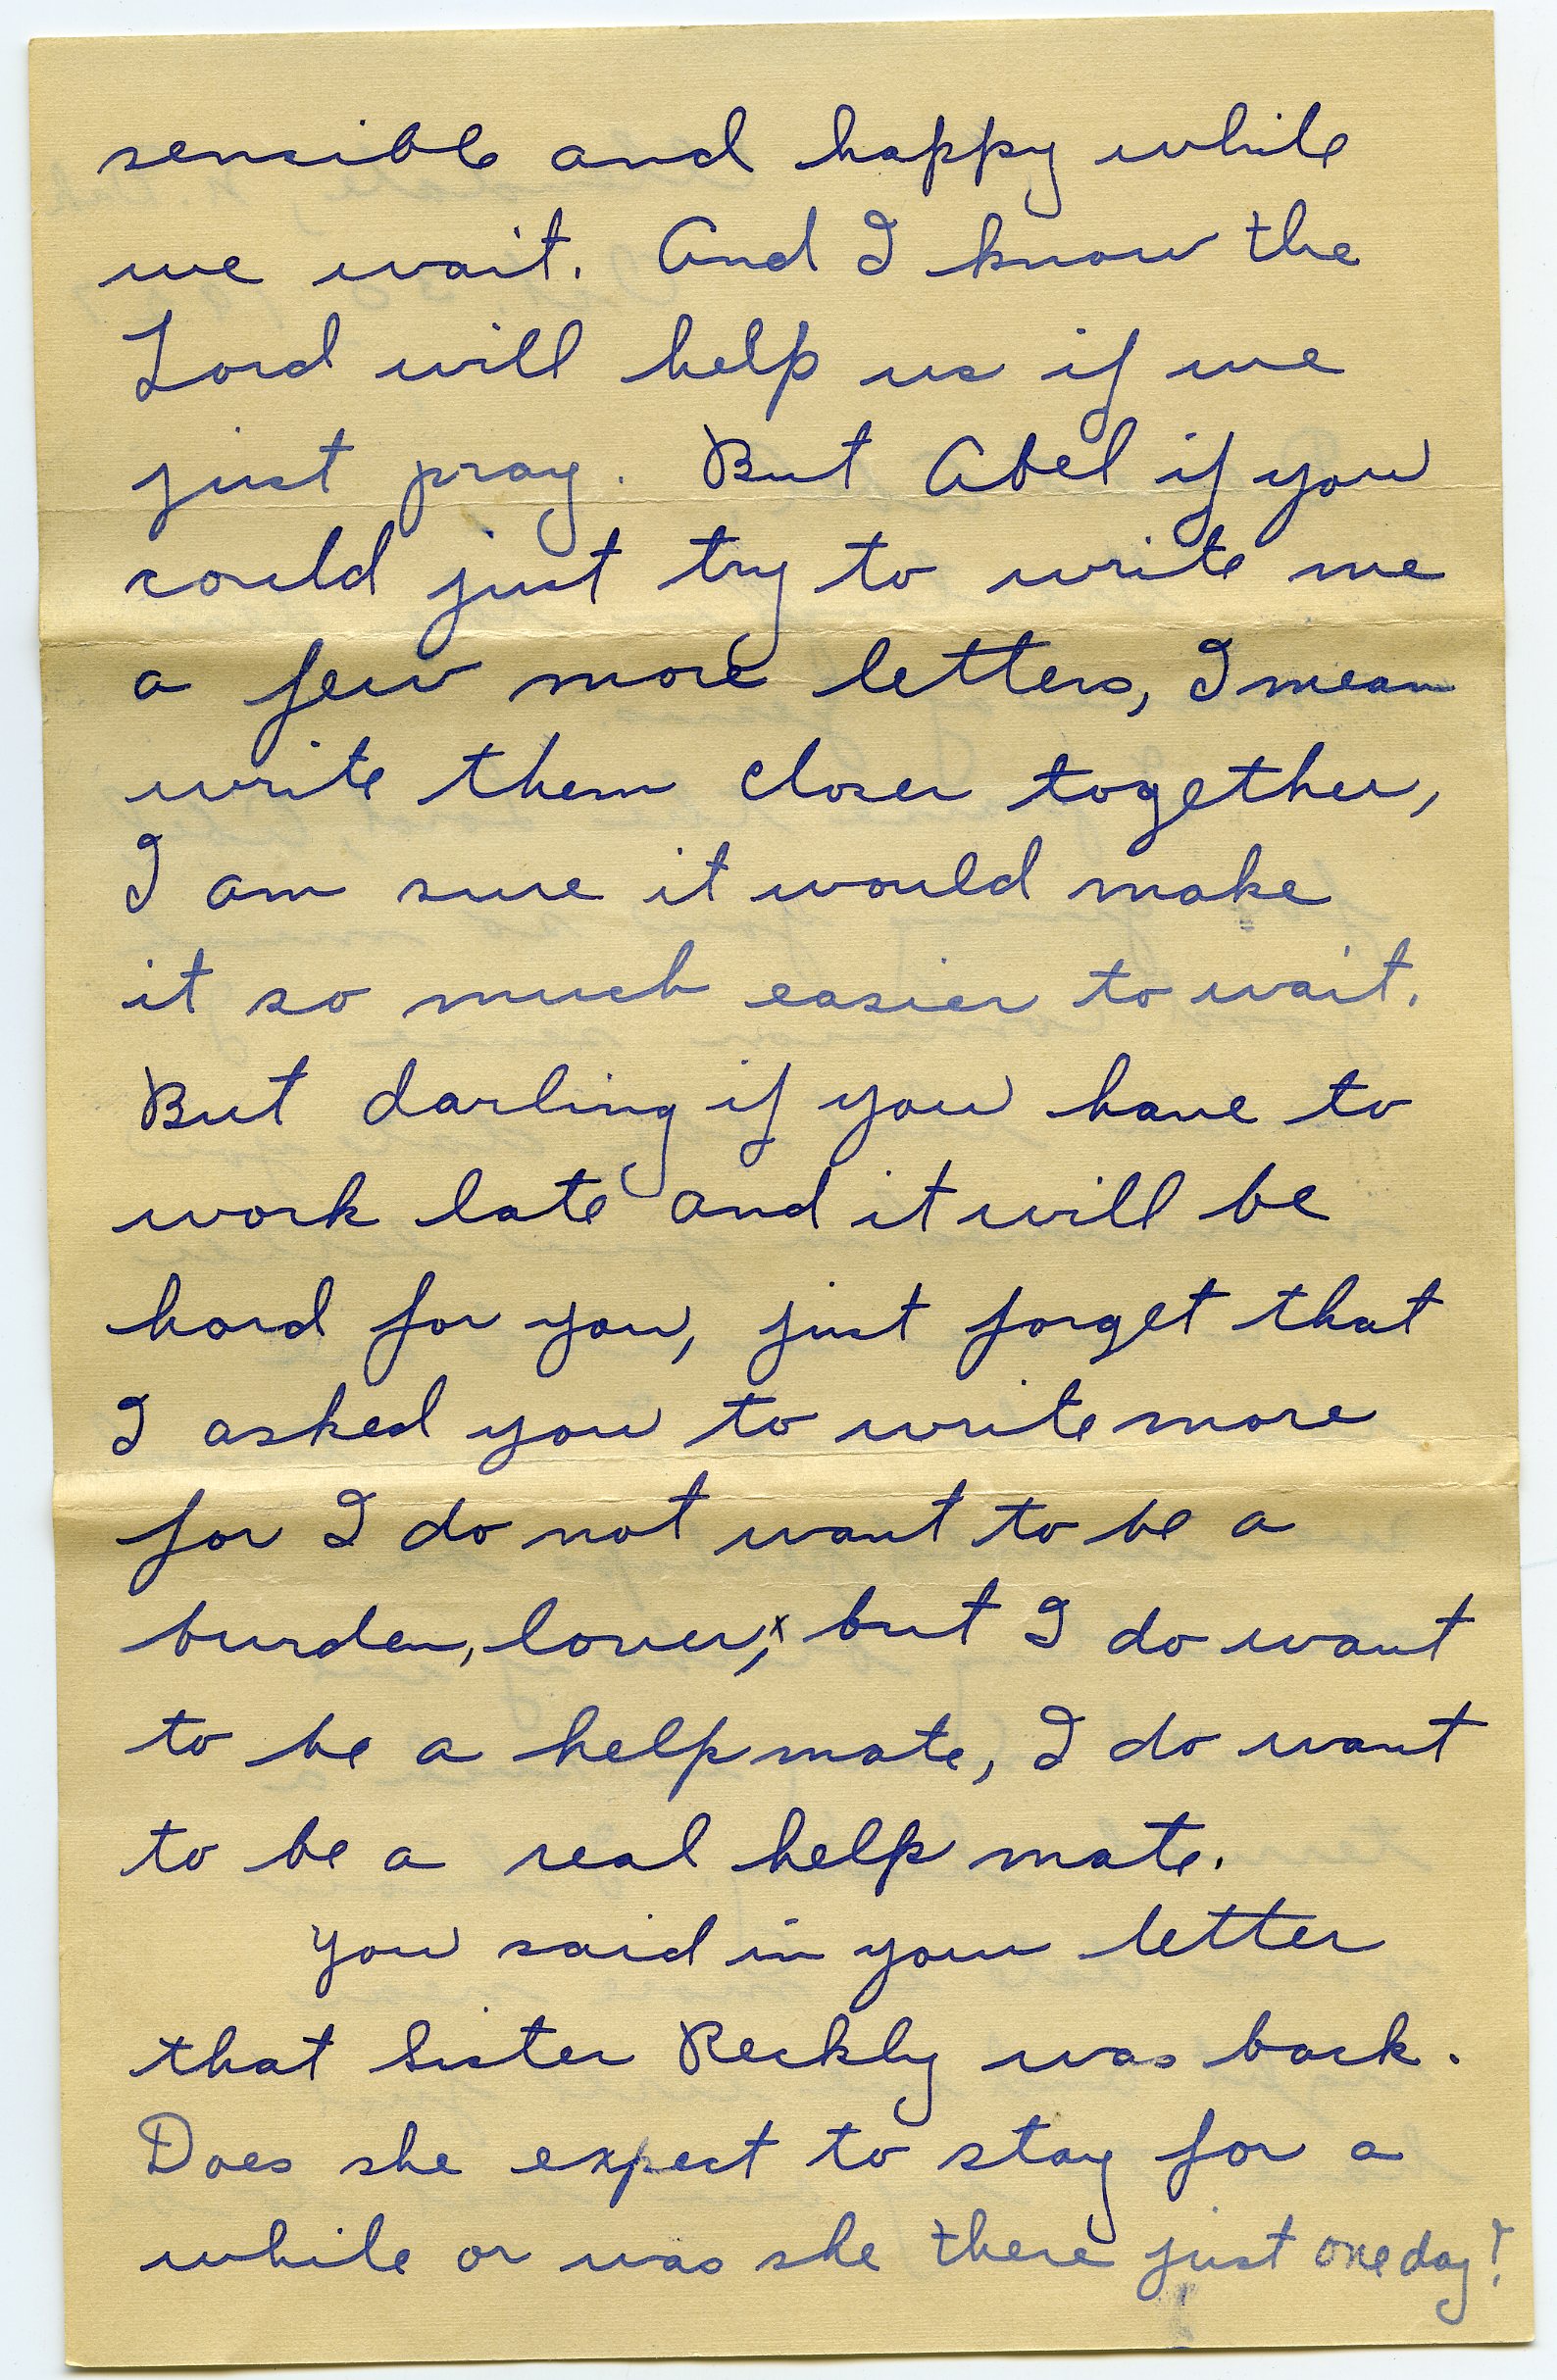 sensible and happy while
we wait. And I know the
Lord will help us if we
just pray. But Abel if you
could just try to write me
a few more letters, I mean
write them closer together,
I am sure it would make
it so much easier to wait.
But darling if you have to
work late and it will be
hard for you, just forget that
I asked you to write more
for I do not want to be a
burden, lover, but I do want
to be a helpmate, I do want
to be a real help mate.
You said in your letter
that Sister Reckly was back.
Does she expect to stay for a
while or was she there just one day?